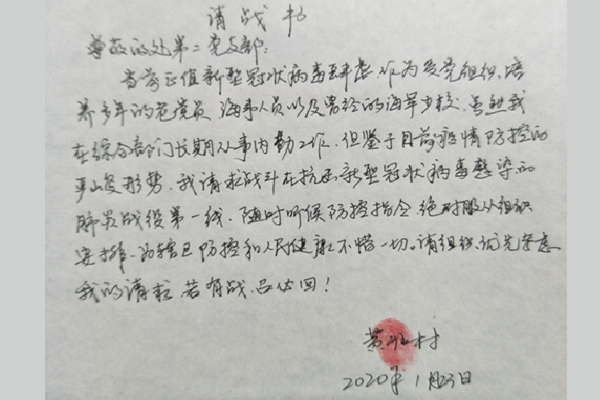 请战书
尊敬的处第二党支部:
当前正值新型冠状病毒肆虐,作为受党组织培
养多年的老党员、海事人员以及曾经的海军少校,虽然我
在综合部门长期从事内勤工作,但鉴于目前疫情防控的
严峻形势,我请求战斗在抗击新型冠状病毒感染的
肺炎战役第一线,随时听候防控指令,绝对服从组织
安排,为辖区防控和人民健康不惜一切。请组织优先考虑
我的请求,若有战,召必回!
黄 村
2020年1月23日